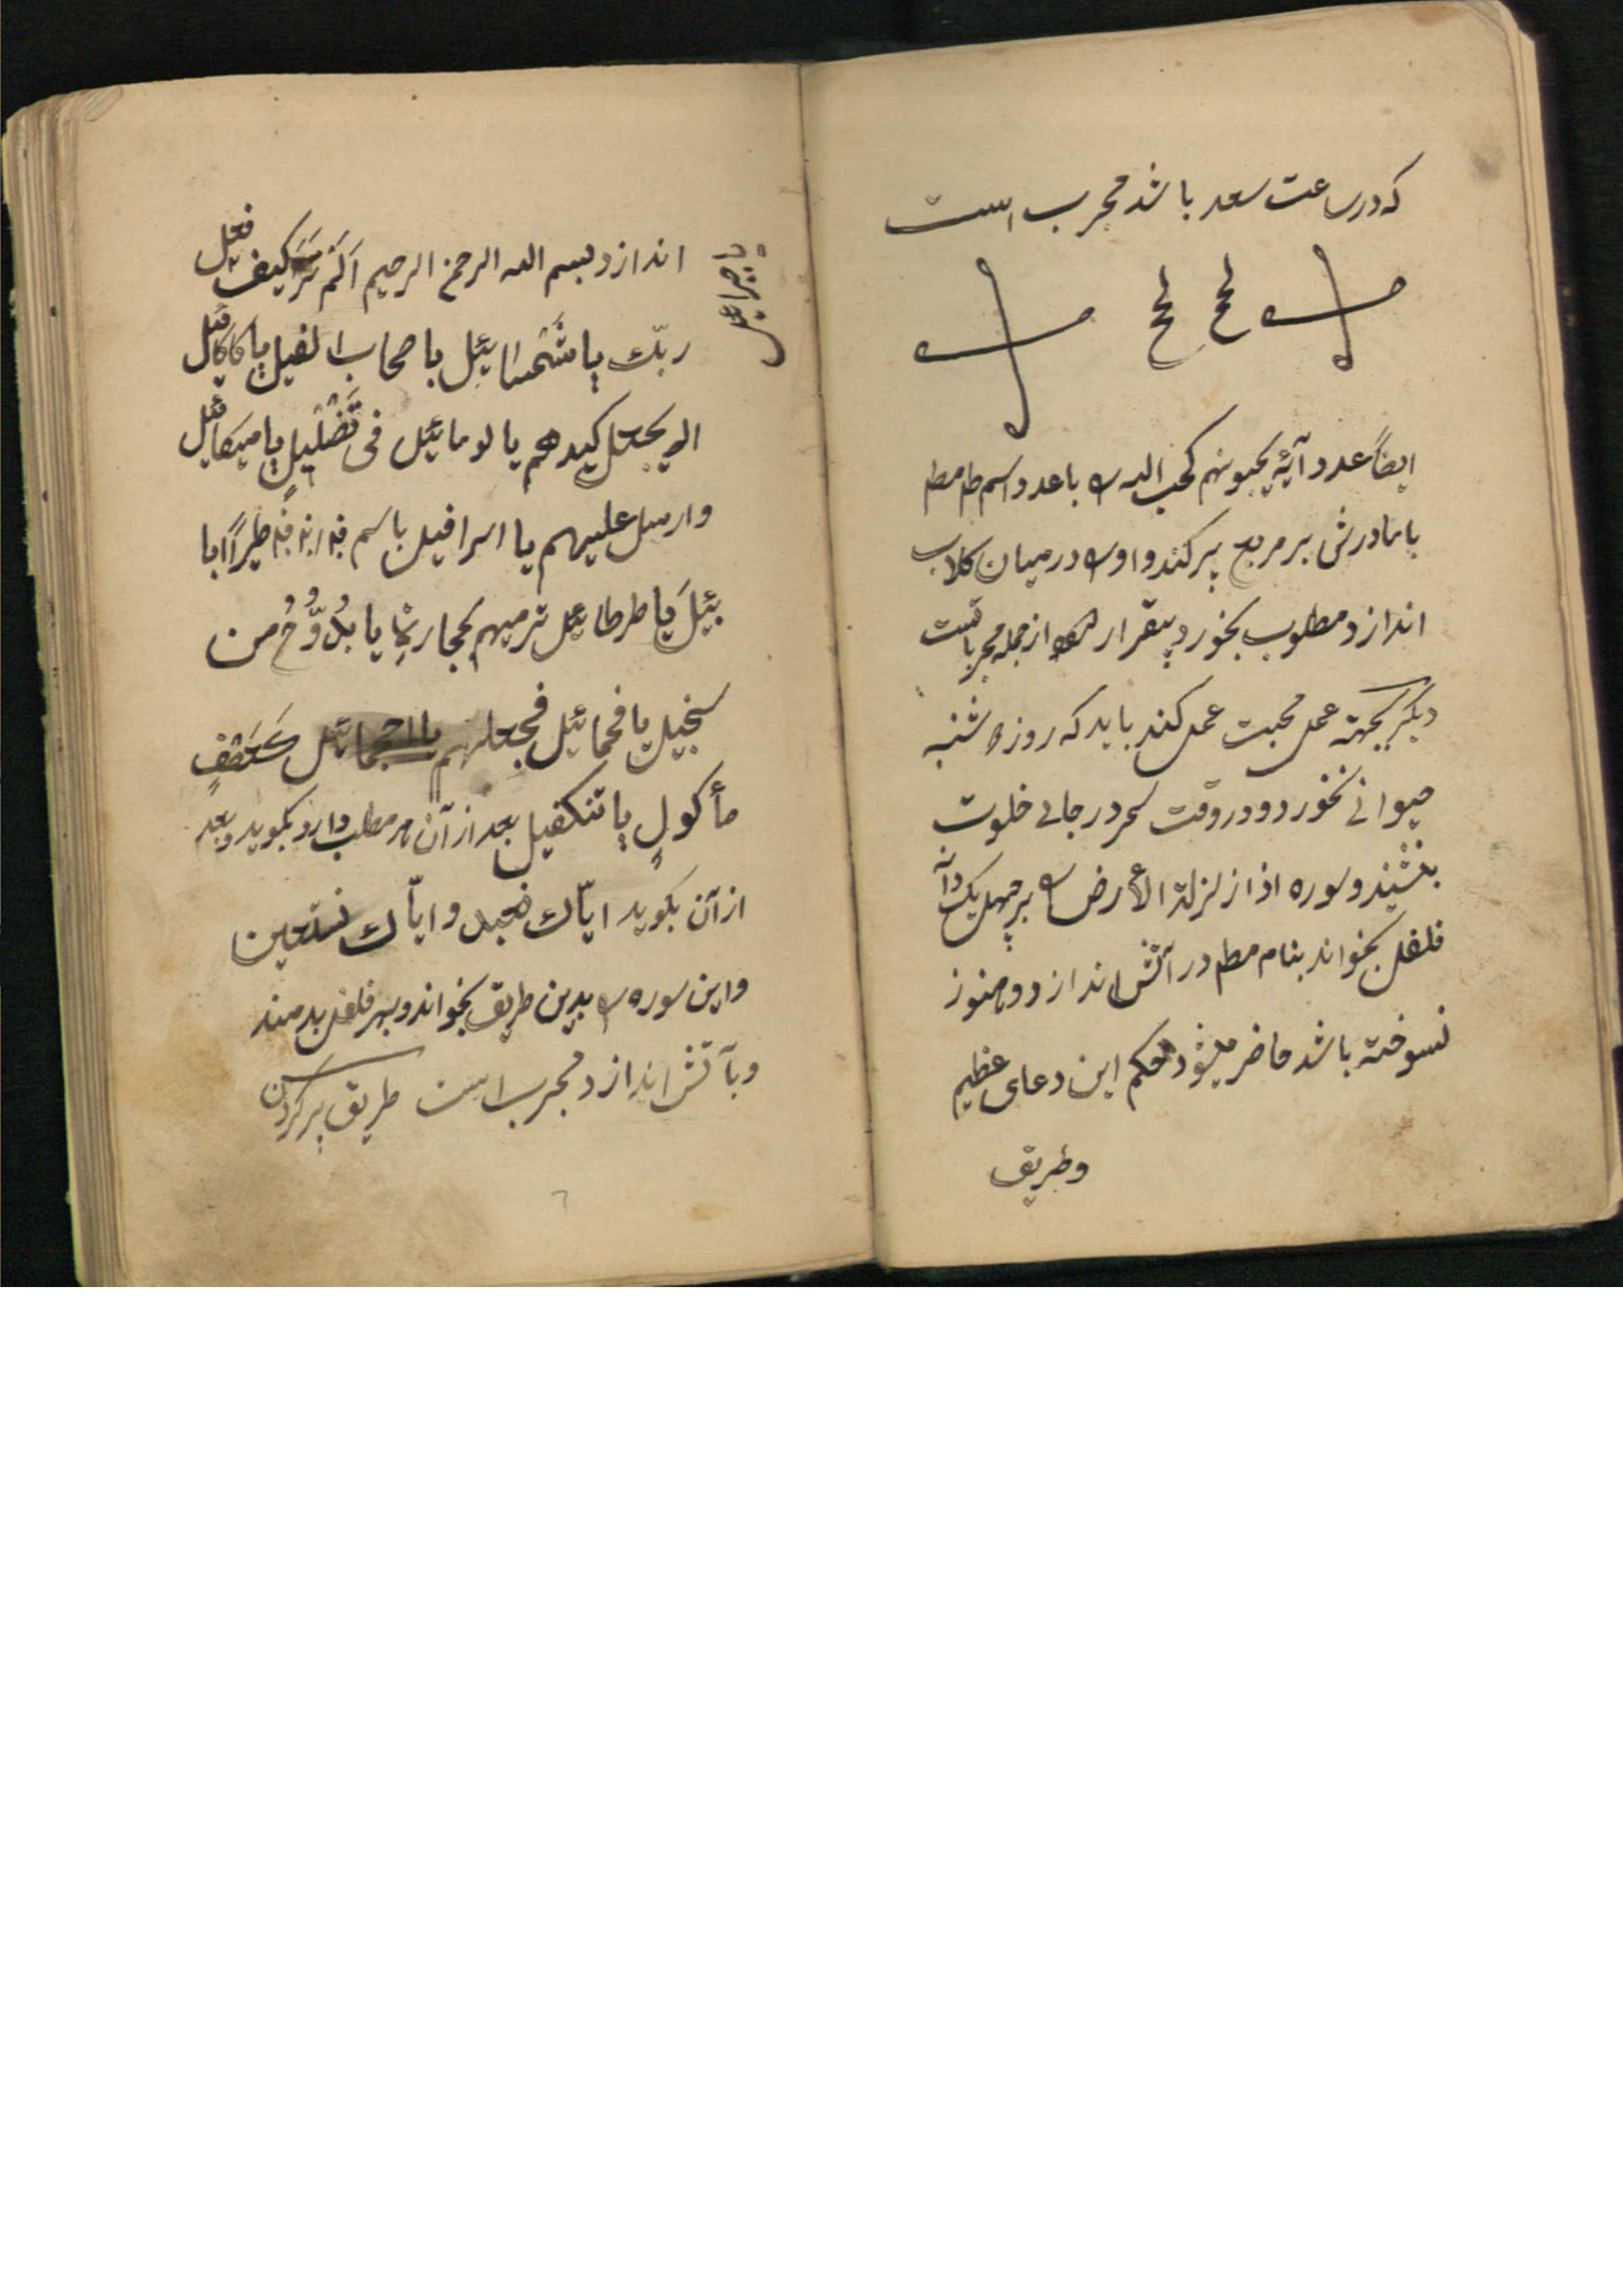 که در ساعت سعد باشد مجرب است
ایضاً عدد آیهٔ یحبونهم کحب الله را با عدد اسم طا مط
با مادرش بر مربع پر کند و او را در میان کلاب
اندازد و مطلوب بخورد بیقرار شود از جمله مجرباتست
دیگر بجهته عمل محبت عمل کند باید که روز شنبه
حیوانی نخورد و در وقت سحر در جای خلوت
بنشیند و سوره اذا زلزلة الارض را بر چهل یک دانه
فلفل بخواند بنام مط در آتش اندازد و هنوز
نسوخته باشد حاضر میشود بحکم این دعای عظیم
وطریق
اندازد بسم الله الرحمن الرحیم اَلَم تَرَ کیف فعل
یا جبرائیل
ربّك یا شمسائیل باصحاب الفیل یا کاکائیل
الم یجعل کیدهم یا لومائیل فی تَضْلیلٍ یا میکائیل
وارسل علیهم یا اسرافیل باسم طیراً ابا
بیلَ یا طرطائیل ترمیهم بحجارةٍ یا بُدُّوُحُ من
سجیل یا فحمائیل فجعلهم یا احجمائیل کَعَصْفٍ
مأکولٍ یا تنکفیل بعد از آن هر مطلب دارد بکوید و بعد
از آن بکوید ایّاك نعبد و ایّاك نستعین
و این سوره را بدین طریق بخواند و بهر فلفل بدمند
و بآتش اندازد مجرب است طریق پر کردن